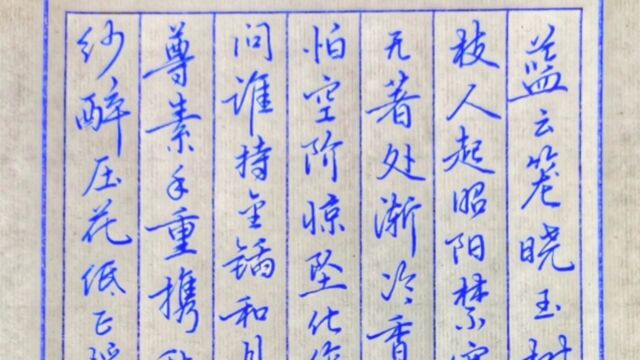 蓝云笼晓玉树
枝人起昭阳禁
无著处渐冷香
怕空阶惊坠化作
问谁持金锸和月
尊素手重携
纱醉压花低正